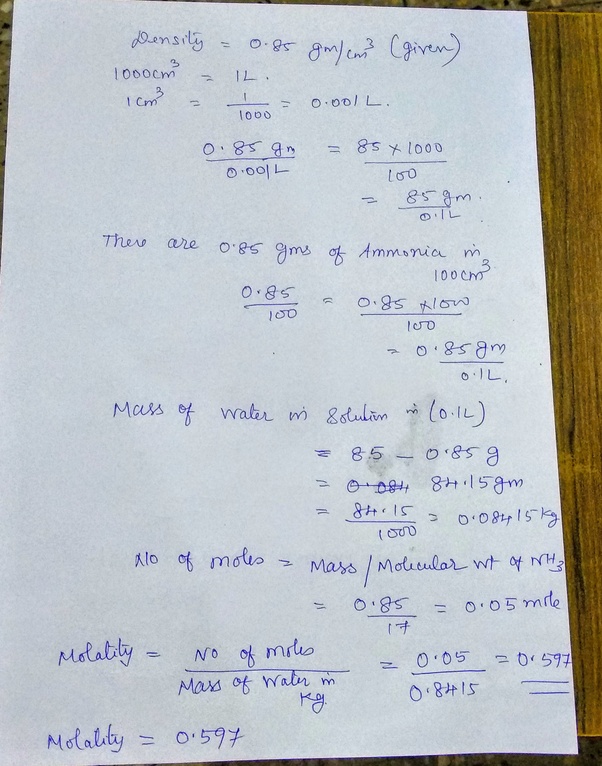 Density = 0.85 gm/cm³ (given)
1000cm³ = 1L.
1cm³ = 1/1000 = 0.001L.
0.85 gm/0.001L = 85 × 1000/100
= 85 gm./0.1L
There are 0.85 gms of Ammonia in
100cm³
0.85/100 = 0.85 × 1000/100
= 0.85gm/0.1L.
Mass of Water in Solution in (0.1L)
= 85 – 0.85 g
= 0.084 84.15gm
= 84.15/1000 = 0.08415kg
No of moles = Mass/Molecular wt of NH₃
= 0.85/17 = 0.05 mole
Molality = No of moles/Mass of Water in kg = 0.05/0.8415 = 0.597
Molality = 0.597